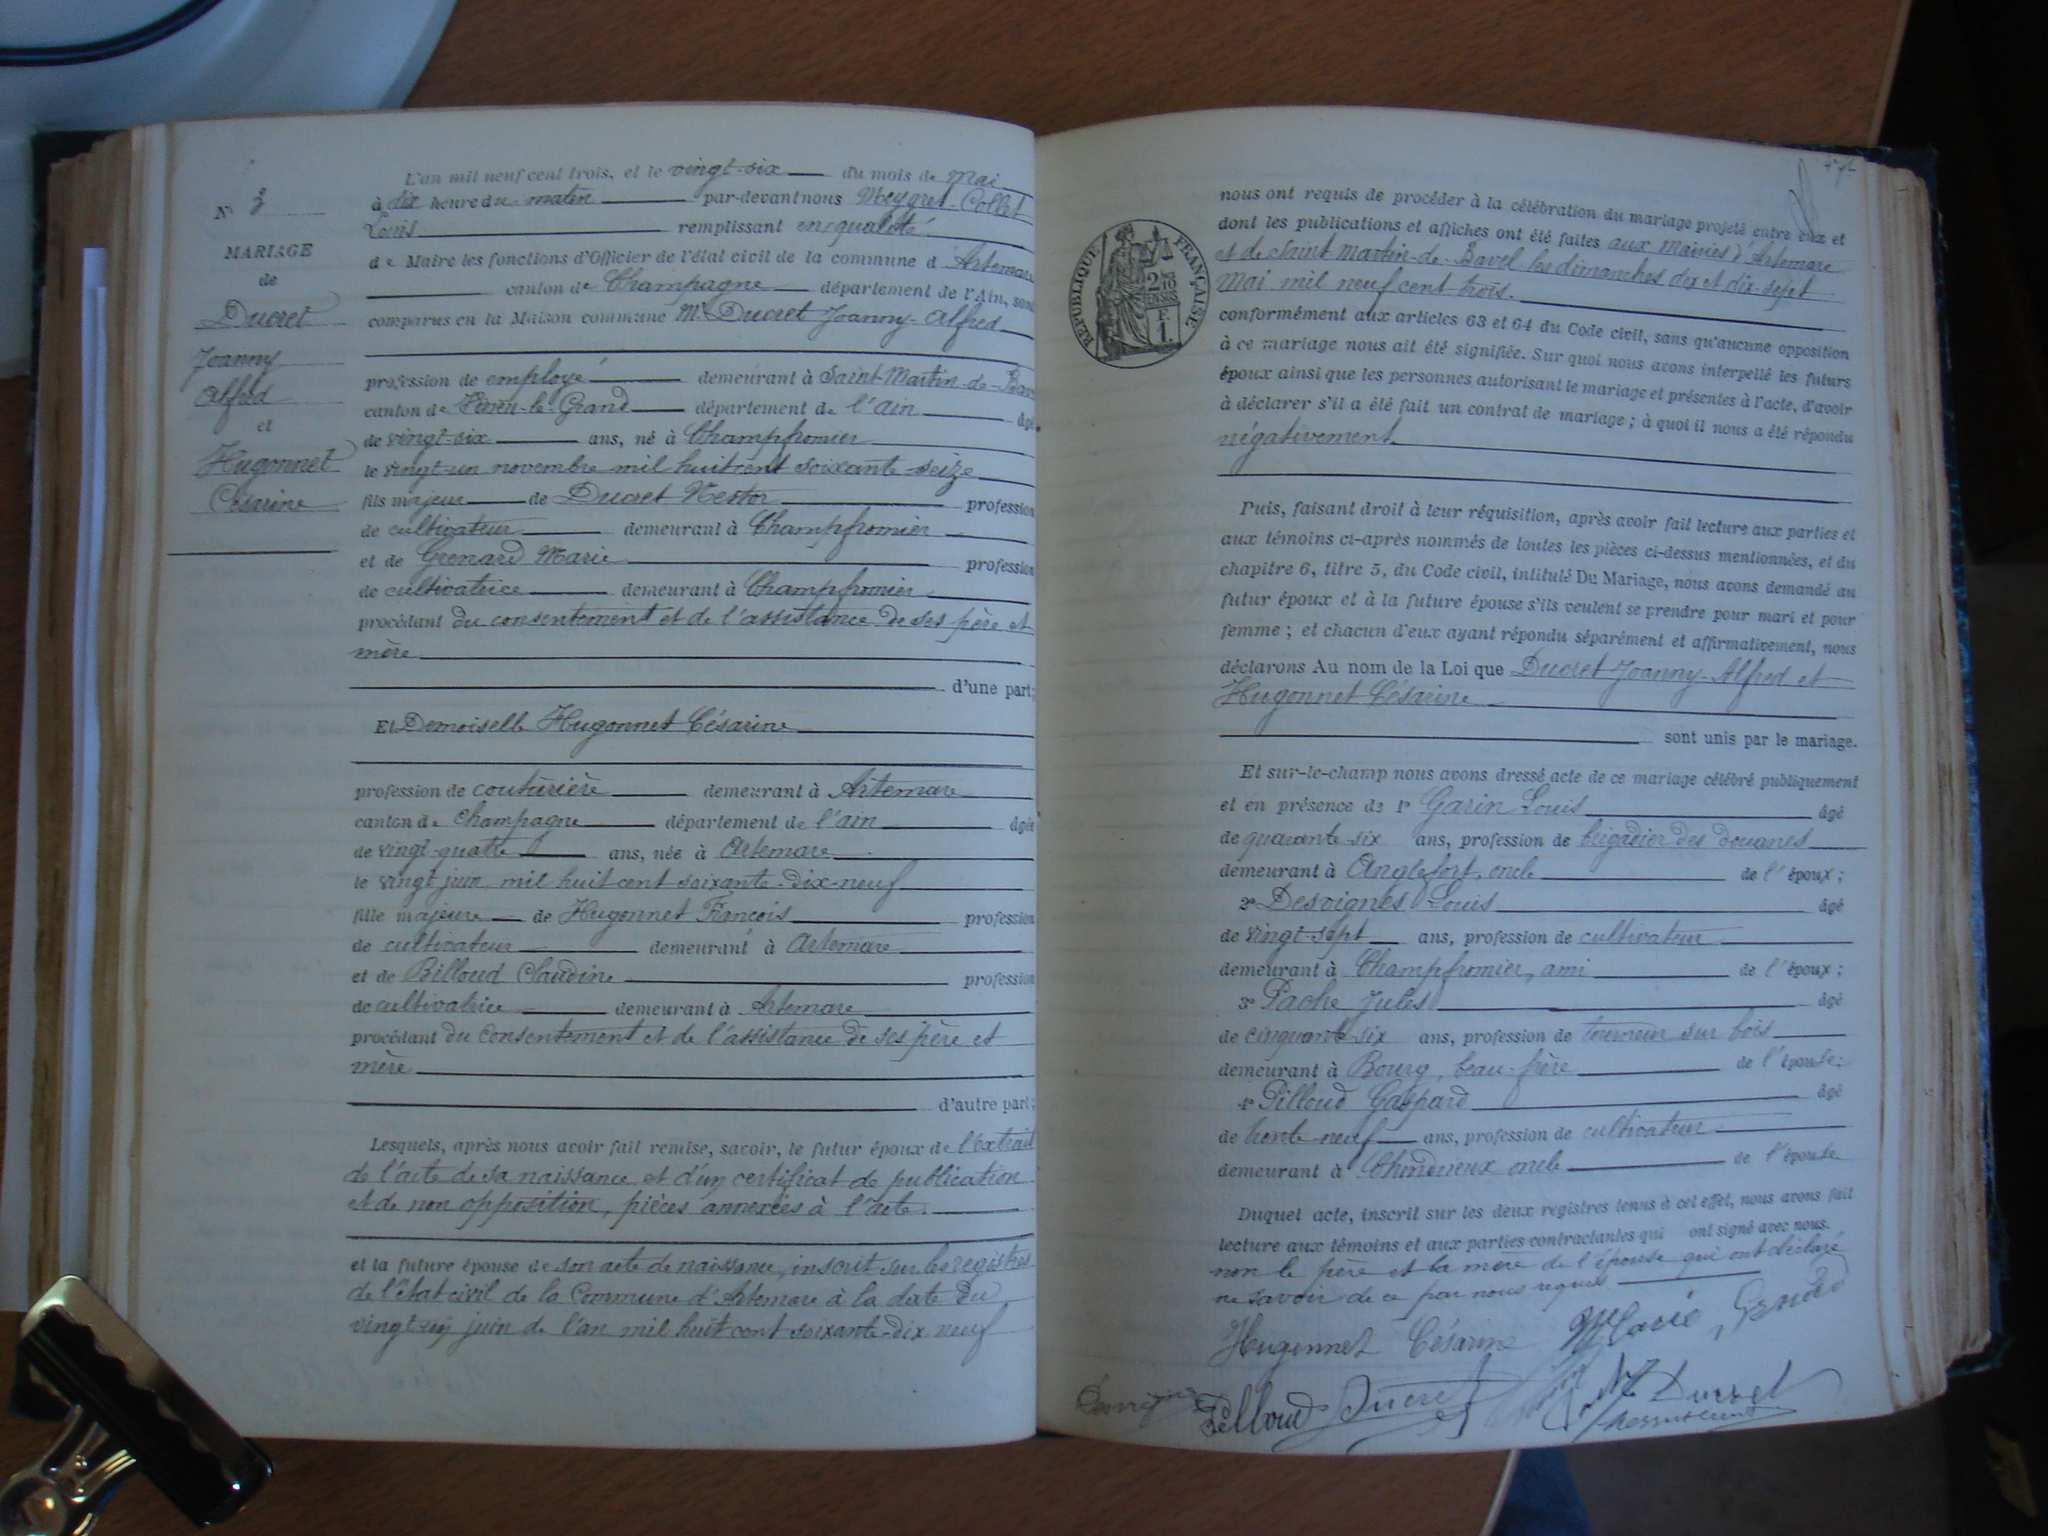 N° 3
MARIAGE
de
Ducret
Joanny
Alfred
et
Hugonnet
Césarine
L'an mil neuf cent trois, et le vingt-six du mois de mai
à dix heure du matin par-devant nous Meygret-Collet
Louis remplissant en qualité
de Maire les fonctions d'Officier de l'état civil de la commune d'Artemare
canton de Champagne département de l'Ain, sont
comparus en la Maison commune Mr Ducret Joanny-Alfred
profession de employé demeurant à Saint-Martin-de-Bav
canton de Virieu-le-Grand département de l'ain âgé
de vingt-six ans, né à Champfromier
le vingt-un novembre mil huit cent soixante-seize
fils majeur de Ducret Nestor profession
de cultivateur demeurant à Champfromier
et de Grenard Marie profession
de cultivatrice demeurant à Champfromier
procédant du consentement et de l'assistance de ses père et
mère
d'une part;
Et Demoiselle Hugonnet Césarine
profession de couturière demeurant à Artemare
canton de Champagne département de l'ain âgée
de vingt-quatre ans, née à Artemare
le vingt juin mil huit cent soixante-dix-neuf
fille majeure de Hugonnet François profession
de cultivateur demeurant à Artemare
et de Billoud Claudine profession
de cultivatrice demeurant à Artemare
procédant du consentement et de l'assistance de ses père et
mère
d'autre part;
Lesquels, après nous avoir fait remise, savoir, le futur époux de l'extrait
de l'acte de sa naissance et d'un certificat de publication
et de non opposition, pièces annexées à l'acte.
et la future épouse de son acte de naissance, inscrit sur les registres
de l'état civil de la Commune d'Artemare à la date du
vingt-un juin de l'an mil huit cent soixante-dix neuf
RÉPUBLIQUE FRANÇAISE
2/10 EN SUS
F. 1.
nous ont requis de procéder à la célébration du mariage projeté entre eux et
dont les publications et affiches ont été faites aux mairies d'Artemare
et de Saint-Martin-de-Bavel les dimanches dix et dix-sept
Mai mil neuf cent trois.
conformément aux articles 63 et 64 du Code civil, sans qu'aucune opposition
à ce mariage nous ait été signifiée. Sur quoi nous avons interpellé les futurs
époux ainsi que les personnes autorisant le mariage et présentes à l'acte, d'avoir
à déclarer s'il a été fait un contrat de mariage; à quoi il nous a été répondu
négativement
Puis, faisant droit à leur réquisition, après avoir fait lecture aux parties et
aux témoins ci-après nommés de toutes les pièces ci-dessus mentionnées, et du
chapitre 6, titre 5, du Code civil, intitulé Du Mariage, nous avons demandé au
futur époux et à la future épouse s'ils veulent se prendre pour mari et pour
femme; et chacun d'eux ayant répondu séparément et affirmativement, nous
déclarons Au nom de la Loi que Ducret Joanny-Alfred et
Hugonnet Césarine
sont unis par le mariage.
Et sur-le-champ nous avons dressé acte de ce mariage célébré publiquement
et en présence de 1° Garin Louis âgé
de quarante-six ans, profession de brigadier des douanes
demeurant à Anglefort, oncle de l'époux;
2° Desvignes Louis âgé
de vingt-sept ans, profession de cultivateur
demeurant à Champfromier, ami de l'époux;
3° Pache Jules âgé
de cinquante-six ans, profession de tourneur sur bois
demeurant à Bourg, beau-frère de l'épouse;
4° Pilloud Gaspard âgé
de trente-neuf ans, profession de cultivateur
demeurant à Chindrieux oncle de l'épouse
Duquel acte, inscrit sur les deux registres tenus à cet effet, nous avons fait
lecture aux témoins et aux parties contractantes qui ont signé avec nous.
non le père et la mère de l'épouse qui ont déclaré
ne savoir de ce par nous requis
Hugonnet Césarine Marie Grenard
Desvignes Pilloud Ducret Ducret